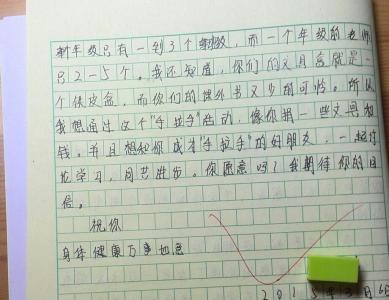 新年级只有一到3个班级，而一个年级前老师
只2-5个。我还知道，你们的文具盒就是一
个铁皮盒，而你们的课外书又少的可怜。所以
我想通过这个"手拉手"活动，像你捐一些文具和
钱。并且想和你成为"手拉手"的好朋友，一起讨
论学习，同共进步。你愿意吗？我期待你的回
信。
祝你
身体健康万事如意
2015年3月6日